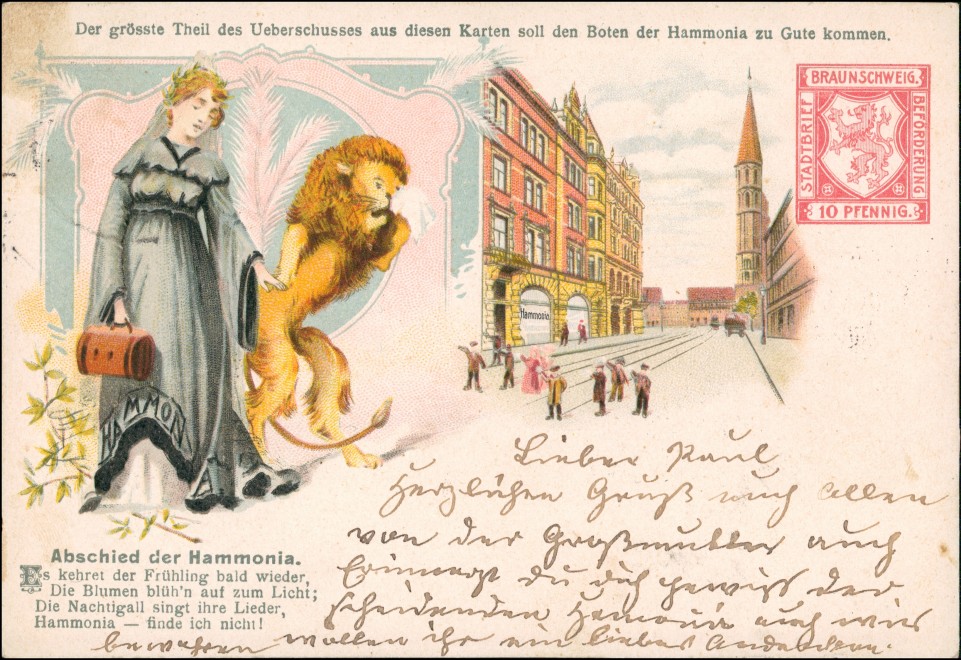 Der grösste Theil des Ueberschusses aus diesen Karten soll den Boten der Hammonia zu Gute kommen.
BRAUNSCHWEIG.
STADTBRIEF
BEFÖRDERUNG
10 PFENNIG.
Hammonia.
HAMMONIA
Abschied der Hammonia.
Es kehret der Frühling bald wieder,
Die Blumen blüh'n auf zum Licht;
Die Nachtigall singt ihre Lieder,
Hammonia — finde ich nicht!
Lieber Paul
Herzlichen Gruß auch allen
von der Großmutter auch
Du dich gewiß der
scheidenden auch wir
bewahren wollen ihr ein liebes Andenken.